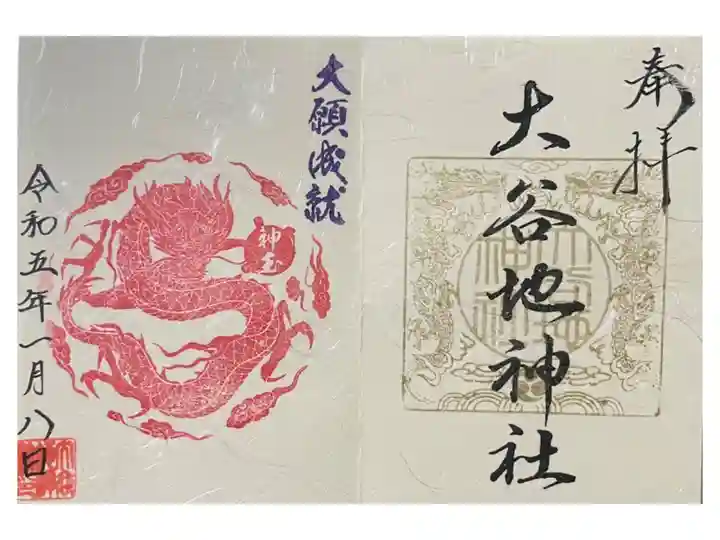 奉拝
大谷地神社
大願成就
神玉
令和五年一月八日